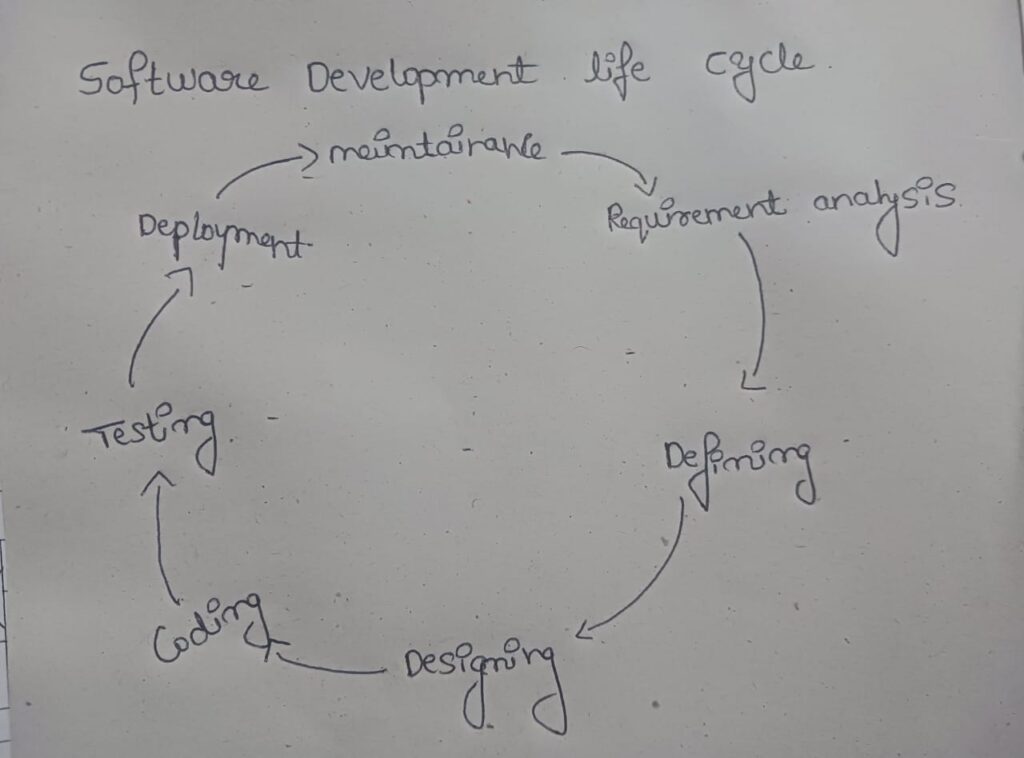 Software Development life cycle.
maintainance
Deployment
Requirement analysis.
Testing.
Defining
Coding
Designing